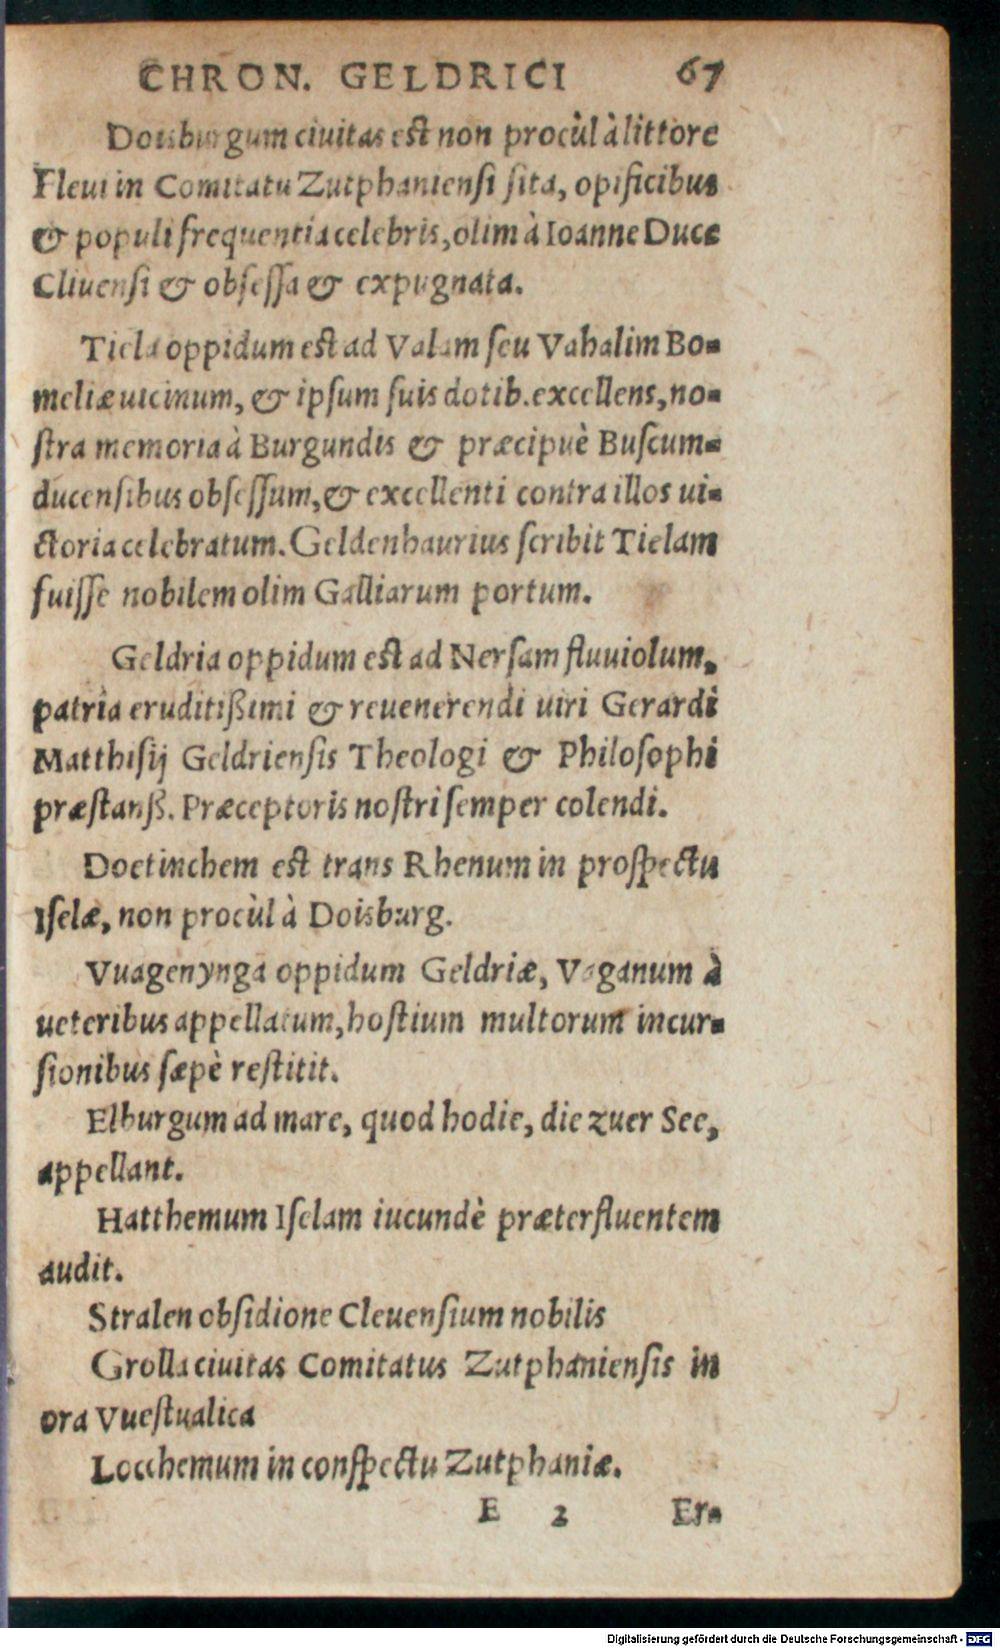 CHRON. GELDRICI 67
Doisburgum ciuitas est non procùl à littore
Fleui in Comitatu Zutphaniensi sita, opificibus
& populi frequentia celebris, olim à Ioanne Duce
Cliuensi & obsessa & expugnata.
Tiela oppidum est ad Valam seu Vahalim Bo-
meliæ uicinum, & ipsum suis dotib. excellens, no-
stra memoria à Burgundis & præcipuè Buscum-
ducensibus obsessum, & excellenti contra illos ui-
ctoria celebratum. Geldenhaurius scribit Tielam
fuisse nobilem olim Galliarum portum.
Geldria oppidum est ad Nersam fluuiolum,
patria eruditißimi & reuenerendi uiri Gerardi
Matthisij Geldriensis Theologi & Philosophi
præstanß. Præceptoris nostri semper colendi.
Doetinchem est trans Rhenum in prospectu
Iselæ, non procùl à Doisburg.
Vuagenynga oppidum Geldriæ, Vaganum à
ueteribus appellatum, hostium multorum incur-
sionibus sæpè restitit.
Elburgum ad mare, quod hodie, die zuer See,
appellant.
Hatthemum Iselam iucundè præterfluentem
audit.
Stralen obsidione Cleuensium nobilis
Grolla ciuitas Comitatus Zutphaniensis in
ora Vuestualica
Locchemum in conspectu Zutphaniæ.
E 2 Er-
Digitalisierung gefördert durch die Deutsche Forschungsgemeinschaft - DFG